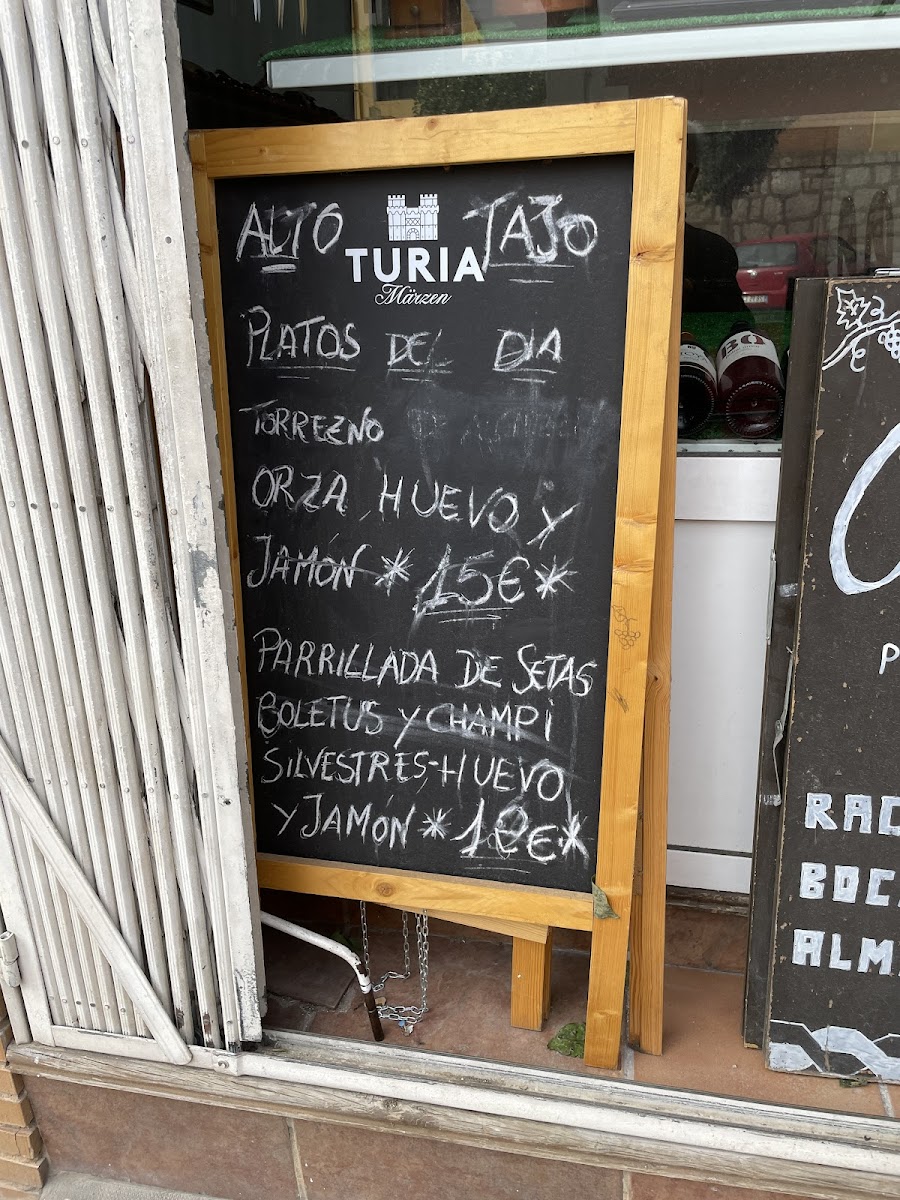 ALTO TAJO
TURIA
Märzen
PLATOS DEL DIA
TORREZNO
ORZA, HUEVO Y
JAMÓN *15€*
PARRILLADA DE SETAS
BOLETUS Y CHAMPI
SILVESTRES-HUEVO
Y JAMÓN
BO
RAC
BOC
ALM